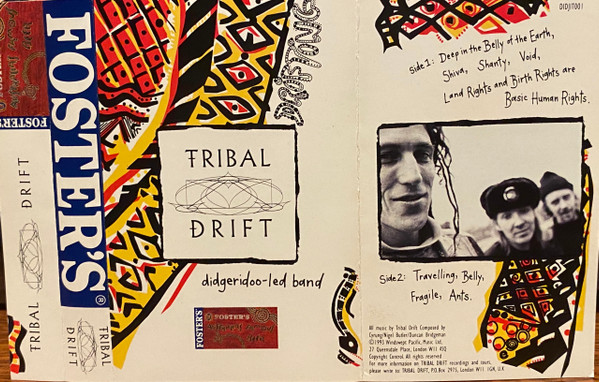 FOSTER'S
TRIBAL DRIFT
FOSTER'S®
TRIBAL DRIFT
TRIBAL
DRIFT
didgeridoo-led band
FOSTER'S
FOSTER'S
DIDJT001
Side 1: Deep in the Belly of the Earth,
Shiva, Shanty, Void,
Land Rights and Birth Rights are
Basic Human Rights.
Side 2: Travelling, Belly,
Fragile, Ants.
All music by Tribal Drift Composed by
Butler/Duncan Bridgeman
©1993 Windswept Pacific Music Ltd.
27 Queensdale Place, London W11 4SQ
Copyright Control. All rights reserved.
For more information on TRIBAL DRIFT recordings and tours,
please write to: TRIBAL DRIFT, P.O.Box 2975, London W11 1GH, U.K